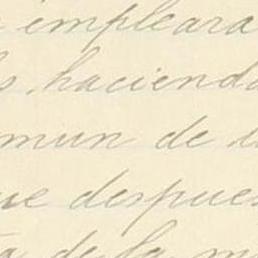 emplear
haciend
mun de
ue despues
de la